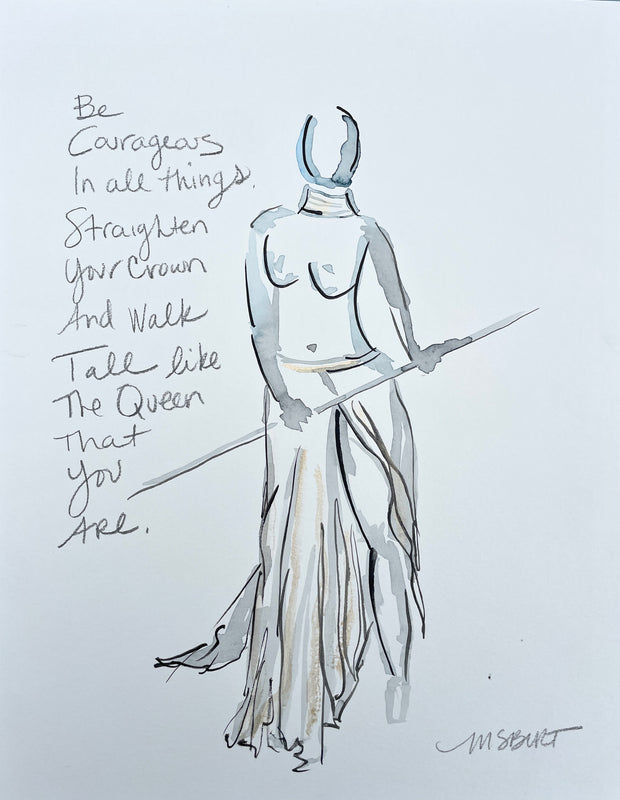 Be
Courageous
In all things.
Straighten
Your Crown
And Walk
Tall like
The Queen
That
You
Are.
MSBURT